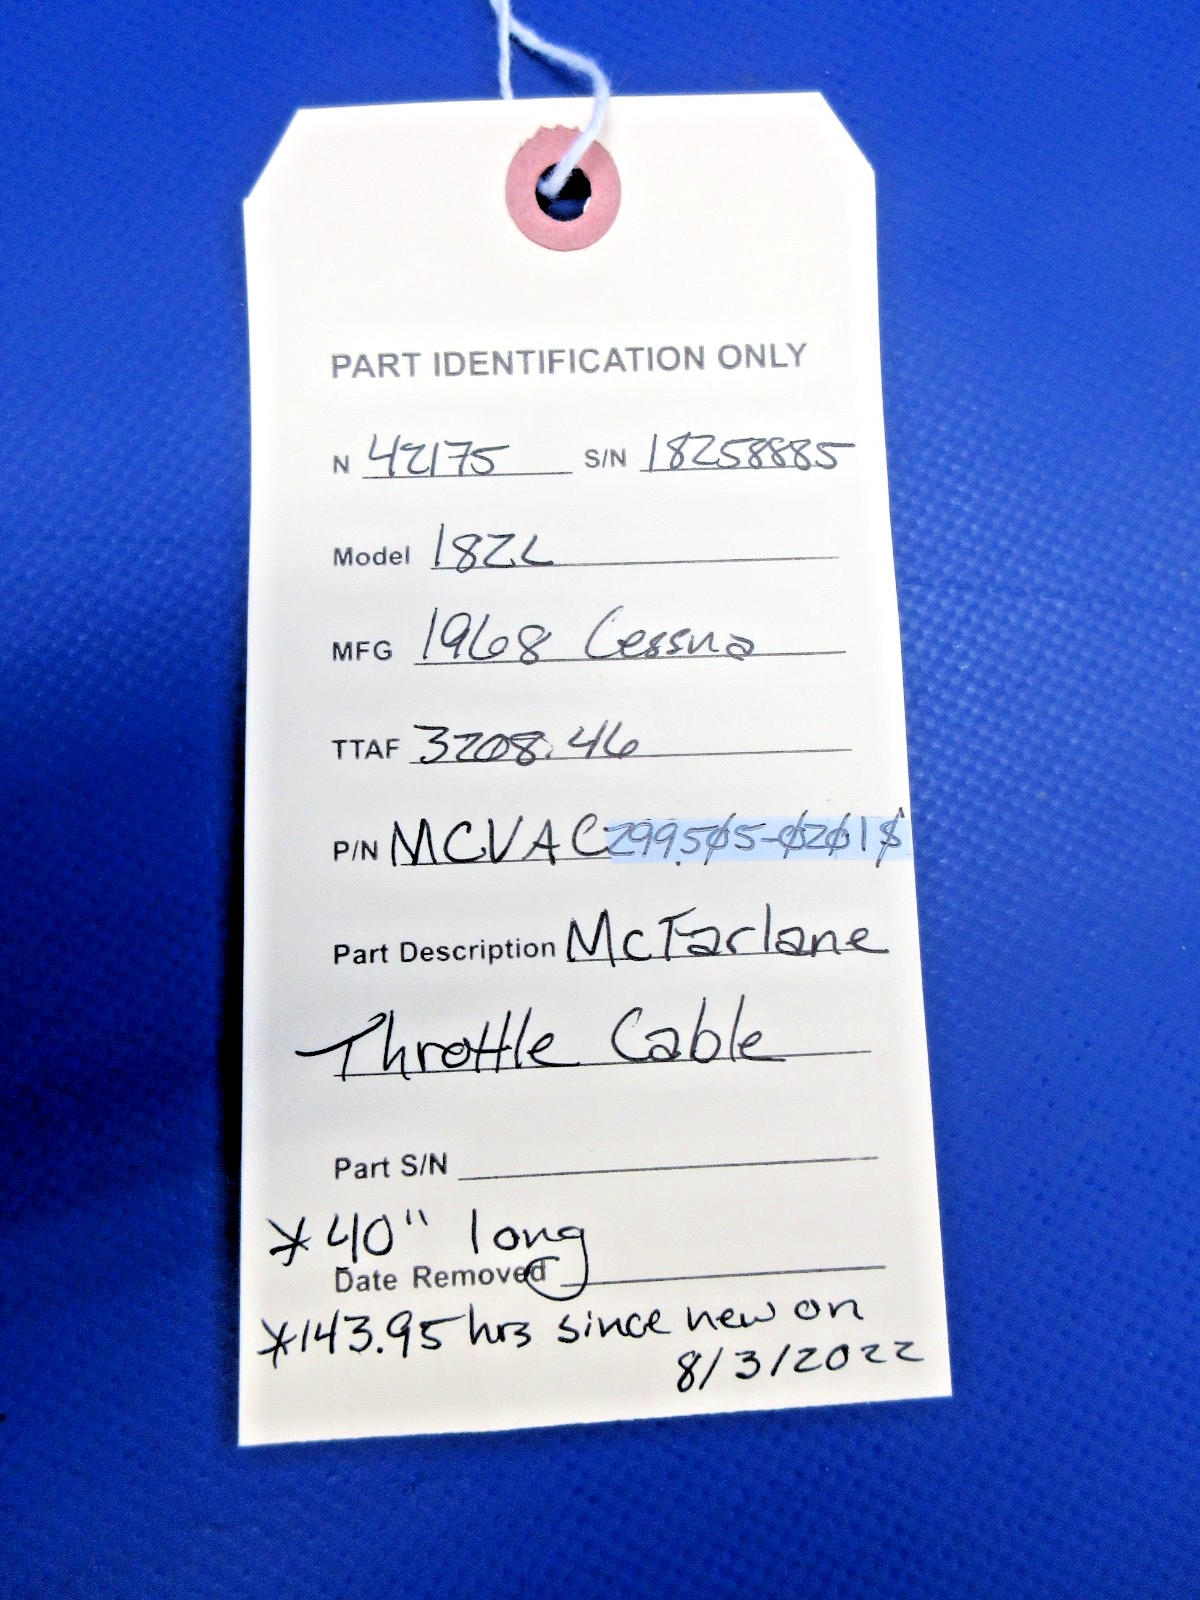 PART IDENTIFICATION ONLY
N 42175 S/N 18258885
Model 182L
MFG 1968 Cessna
TTAF 3208.46
P/N MCVAC299505-0201
Part Description McFarlane
Throttle Cable
Part S/N
*40" long
Date Removed
*143.95 hrs since new on
8/3/2022